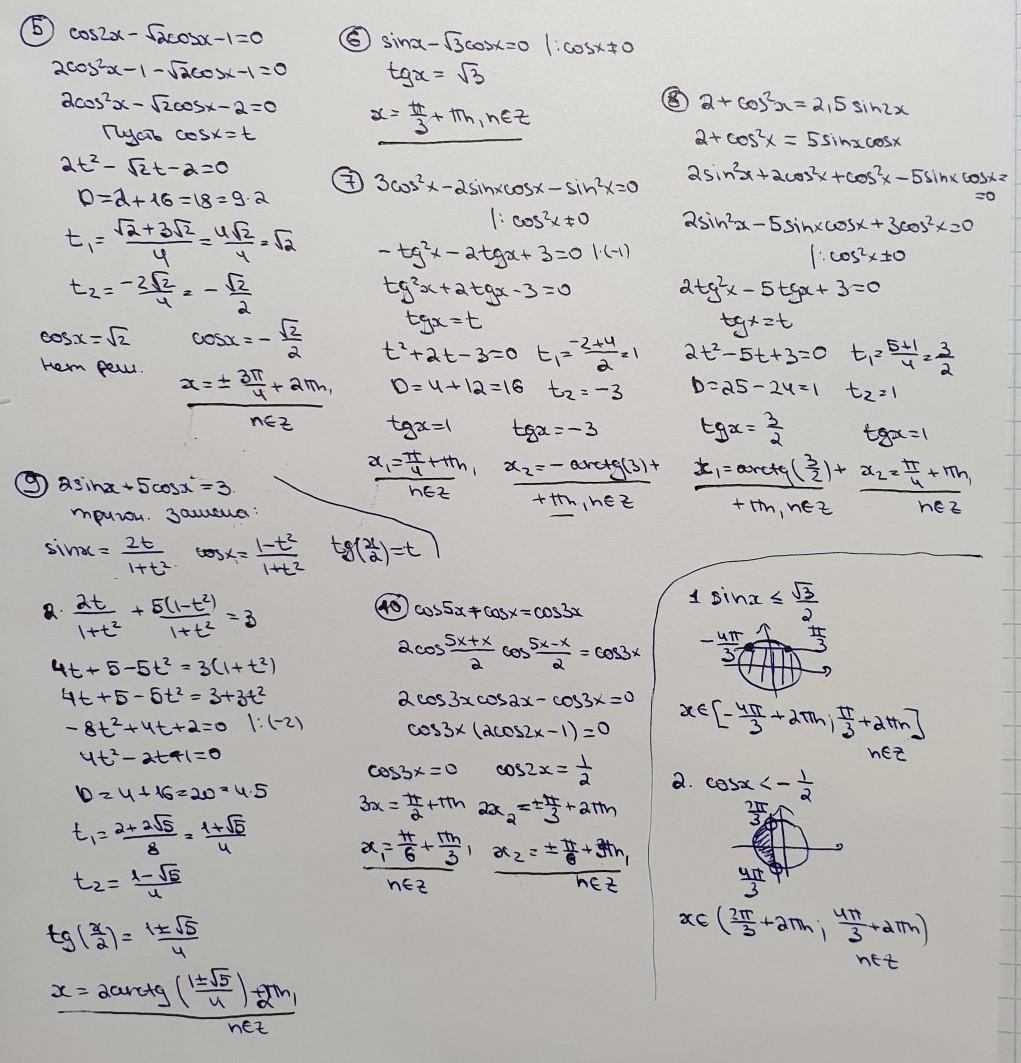 5 cos2x - √2cosx - 1 = 0
2cos²x - 1 - √2cosx - 1 = 0
2cos²x - √2cosx - 2 = 0
Пусть cosx = t
2t² - √2t - 2 = 0
D = 2 + 16 = 18 = 9·2
t₁ = (√2+3√2)/4 = 4√2/4 = √2
t₂ = -2√2/4 = -√2/2
cosx = √2 cosx = -√2/2
нет реш.
x = ± 3π/4 + 2πn,
n∈Z
6 sinx - √3cosx = 0 |:cosx≠0
tgx = √3
x = π/3 + πn, n∈Z
7 3cos²x - 2sinxcosx - sin²x = 0
|: cos²x ≠ 0
-tg²x - 2tgx + 3 = 0 |·(-1)
tg²x + 2tgx - 3 = 0
tgx = t
t² + 2t - 3 = 0 t₁ = (-2+4)/2 = 1
D = 4 + 12 = 16 t₂ = -3
tgx = 1 tgx = -3
x₁ = π/4 + πn, x₂ = -arctg(3) +
n∈Z + πn, n∈Z
8 2 + cos²x = 2,5 sin2x
2 + cos²x = 5sinxcosx
2sin²x + 2cos²x + cos²x - 5sinxcosx =
= 0
2sin²x - 5sinxcosx + 3cos²x = 0
|: cos²x ≠ 0
2tg²x - 5tgx + 3 = 0
tgx = t
2t² - 5t + 3 = 0 t₁ = (5+1)/4 = 3/2
D = 25 - 24 = 1 t₂ = 1
tgx = 3/2 tgx = 1
x₁ = arctg(3/2) + x₂ = π/4 + πn,
+ πn, n∈Z n∈Z
9 2sinx + 5cosx = 3.
тригон. замена:
sinx = 2t/(1+t²) cosx = (1-t²)/(1+t²) tg(x/2) = t
2· 2t/(1+t²) + 5(1-t²)/(1+t²) = 3
4t + 5 - 5t² = 3(1+t²)
4t + 5 - 5t² = 3 + 3t²
-8t² + 4t + 2 = 0 |:(-2)
4t² - 2t - 1 = 0
D = 4 + 16 = 20 = 4·5
t₁ = (2+2√5)/8 = (1+√5)/4
t₂ = (1-√5)/4
tg(x/2) = (1±√5)/4
x = 2arctg((1±√5)/4) + 2πn,
n∈Z
10 cos5x + cosx = cos3x
2cos (5x+x)/2 cos (5x-x)/2 = cos3x
2cos3xcos2x - cos3x = 0
cos3x (2cos2x - 1) = 0
cos3x = 0 cos2x = 1/2
3x = π/2 + πn 2x₂ = ±π/3 + 2πn
x₁ = π/6 + πn/3, x₂ = ± π/6 + πn,
n∈Z n∈Z
1 sinx ≤ √3/2
-4π/3 π/3
x∈[-4π/3 + 2πn; π/3 + 2πn]
n∈Z
2. cosx < -1/2
2π/3
4π/3
x∈(2π/3 + 2πn; 4π/3 + 2πn)
n∈Z